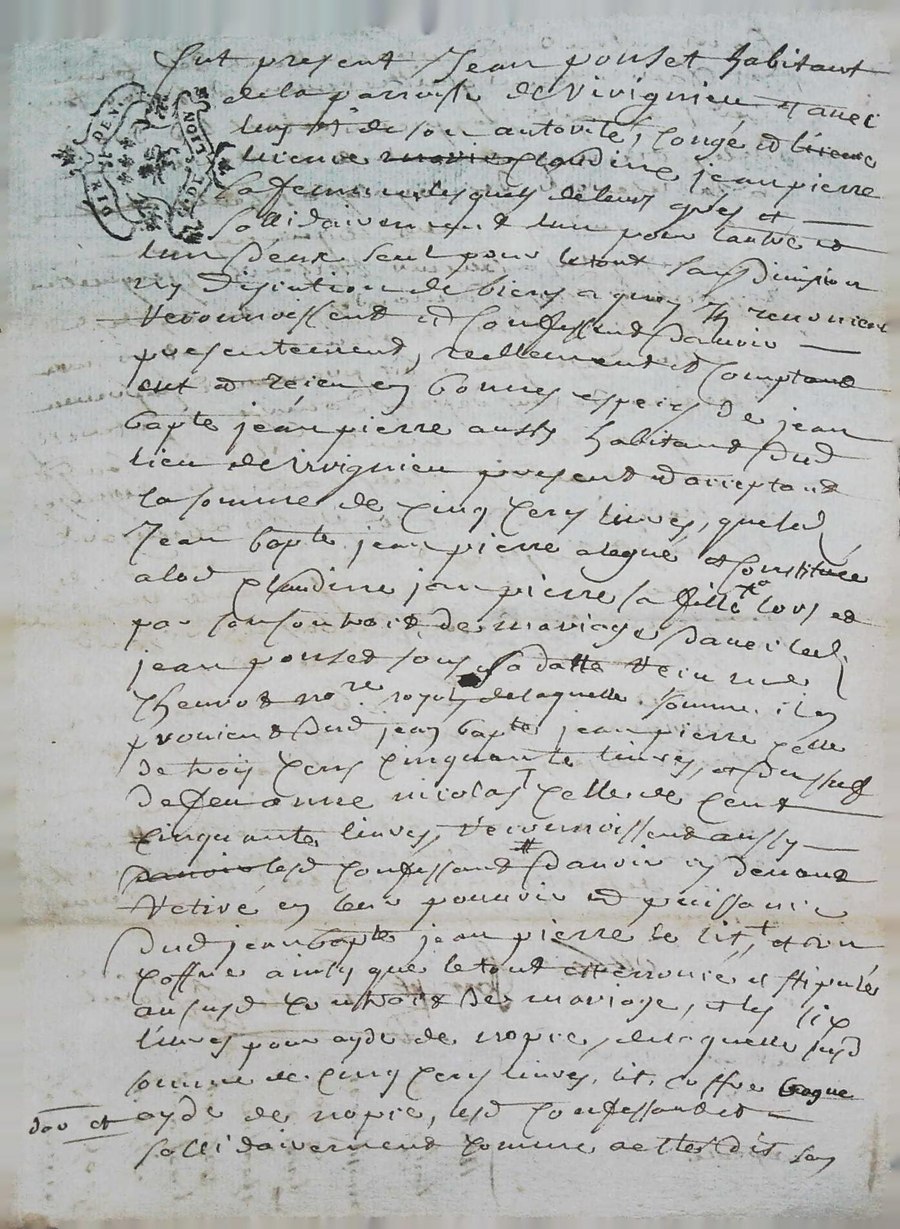 Fut present Jean ponset habitant
de la parroisse de virignieu et avec
luy de son autorité, congé et licence
licence claudine jeanpierre
sa femme lesquels de leurs grés et
sollidairement l'un pour l'autre et
l'un deux seul pour le tout sans division
ny discution de biens a quoy ils renoncent
Reconnoissent et confessent d'avoir
presentement, reellement et comptant
eut et reçeu en bonnes especes de jean
bapte jeanpierre aussy habitant dud
lieu de virignieu present et acceptant
la somme de cinq cens livres, que led
Jean bapte jeanpierre a legué et constitué
a lad claudine jeanpierre sa fille lors et
par son contrait de mariage d'avec led
jean ponset sous sa datte Receu
Chenot nore royal de laquelle somme il en
provient dud jean bapte jeanpierre celle
de trois cens cinquante livres, et du chef
de feu anne nicolas celle de cent
cinquante livres, Reconnoissent aussy
lesd confessant d'avoir cy devant
Retiré en leur pouvoir et puissance
dud jean bapte jeanpierre le lit, et un
coffre ainsy que le tout est enoncé et stipulés
au susd contrait de mariage, et les six
livres pour ayde de nopce, de laquelle susd
somme de cinq cens livres, lit, coffre bague
ayde de nopce, lesd confessant et
sollidairement comme a este dit sen
DIX DEN.
G. DE LION